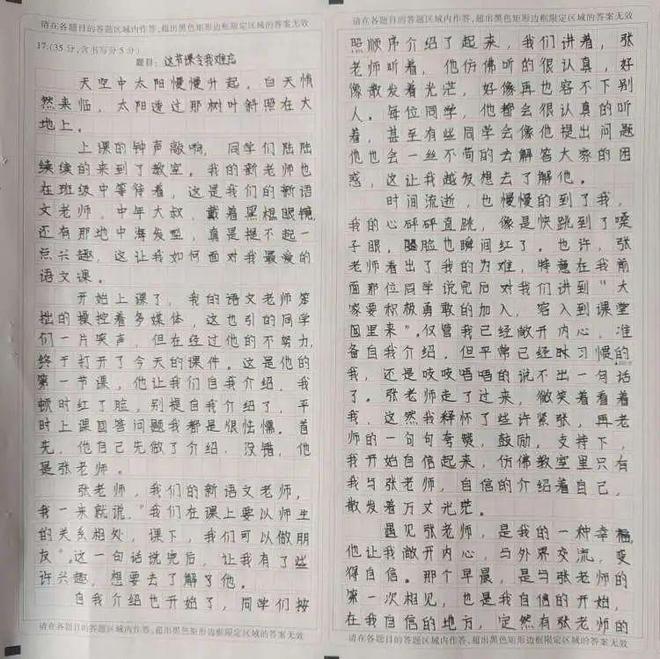 请在各题目的答题区域内作答,超出黑色矩形边框限定区域的答案无效
17.(35分,含书写分5分)
题目:这节课令我难忘
天空中太阳慢慢升起,白天悄
然来临,太阳透过那树叶斜照在大
地上。
上课的钟声敲响,同学们陆陆
续续的来到了教室。我的新老师也
在班级中等待着,这是我们的新语
文老师,中年大叔,戴着黑框眼镜,
还有那地中海发型,真是提不起一
点兴趣,这让我如何面对我最爱的
语文课。
开始上课了,我的语文老师笨
拙的操控着多媒体,这也引的同学
们一片笑声,但在经过他的不努力,
终于打开了今天的课件。这是他的
第一节课,他让我们自我介绍,我
顿时红了脸,别提自我介绍了,平
时上课回答问题我都是很怯懦。首
先,他自己先做了介绍,没错,他
是张老师。
张老师,我们的新语文老师,
我一来就说,“我们在课上要以师生
的关系相处,课下,我们可以做朋
友”。这一句话说完后,让我有了些
许兴趣,想要去了解了他。
自我介绍也开始了,同学们按
请在各题目的答题区域内作答,超出黑色矩形边框限定区域的答案无效
请在各题目的答题区域内作答,超出黑色矩形边框限定区域的答案无效
照顺序介绍了起来,我们讲着,张
老师听着,他仿佛听的很认真,好
像散发着光茫,好像再也容不下别
人。每位同学,他都会很认真的听
着,甚至有些同学会像他提出问题
他也会一丝不苟的去解答大家的困
惑,这让我越发想去了解他。
时间流逝,也慢慢的到了我,
我的心砰砰直跳,像是快跳到了嗓
子眼,脸也瞬间红了。也许,张
老师看出了我的为难,特意在我前
面那位同学说完后对我们讲到“大
家要积极勇敢的加入,容入到课堂
回里来”。仅管我已经敞开内心,准
备自我介绍,但平常已经时习惯的
我,还是吱吱唔唔的说不出一句话
了。张老师走了过来,微笑着看着
我,这然我释怀了些许紧张,再老
师的一句句夸奖,鼓励,支持下,
我开始自信起来,仿佛教室里只有
我与张老师,自信的介绍着自己,
散发着万丈光茫。
遇见张老师,是我的一种幸福,
他让我敞开内心,与外界交流,变
得自信。那个早晨,是与张老师的
第一次相见,也是我自信的开始,
在我自信的地方,定然有张老师的
请在各题目的答题区域内作答,超出黑色矩形边框限定区域的答案无效